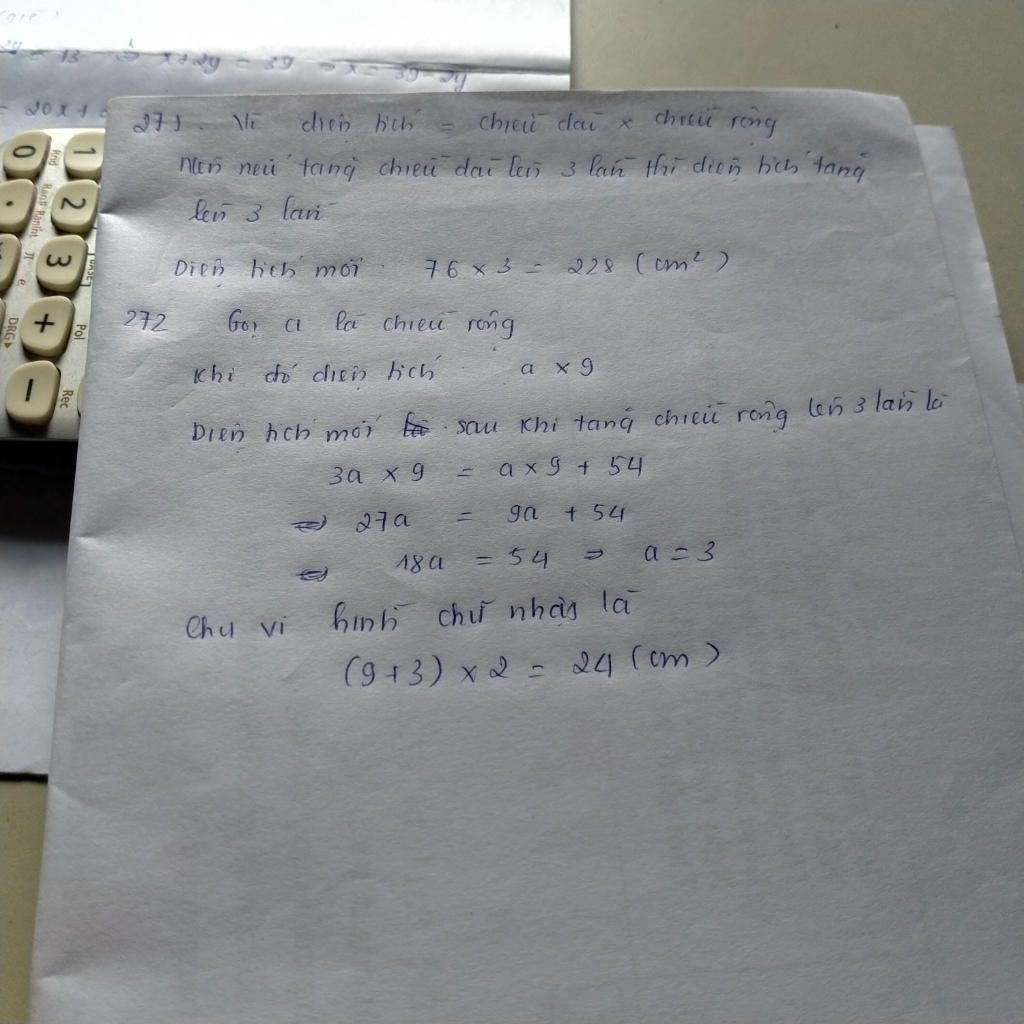 = 13 x + 2y = 39 => x = 39 - 2y
= 20x +
271. Vì diện tích = chiều dài x chiều rộng
Nên nếu tăng chiều dài lên 3 lần thì diện tích tăng
lên 3 lần
Diện tích mới. 76 x 3 = 228 (cm²)
272 Gọi a là chiều rộng
Khi đó diện tích. a x 9
Diện tích mới sau khi tăng chiều rộng lên 3 lần là
3a x 9 = a x 9 + 54
<=> 27a = 9a + 54
<=> 18a = 54 => a = 3
Chu vi hình chữ nhật là
(9+3) x 2 = 24 (cm)
0
1
Rnd
.
2
Ran# RanInt
3
π e
+
Pol
DRG▶
−
Rec